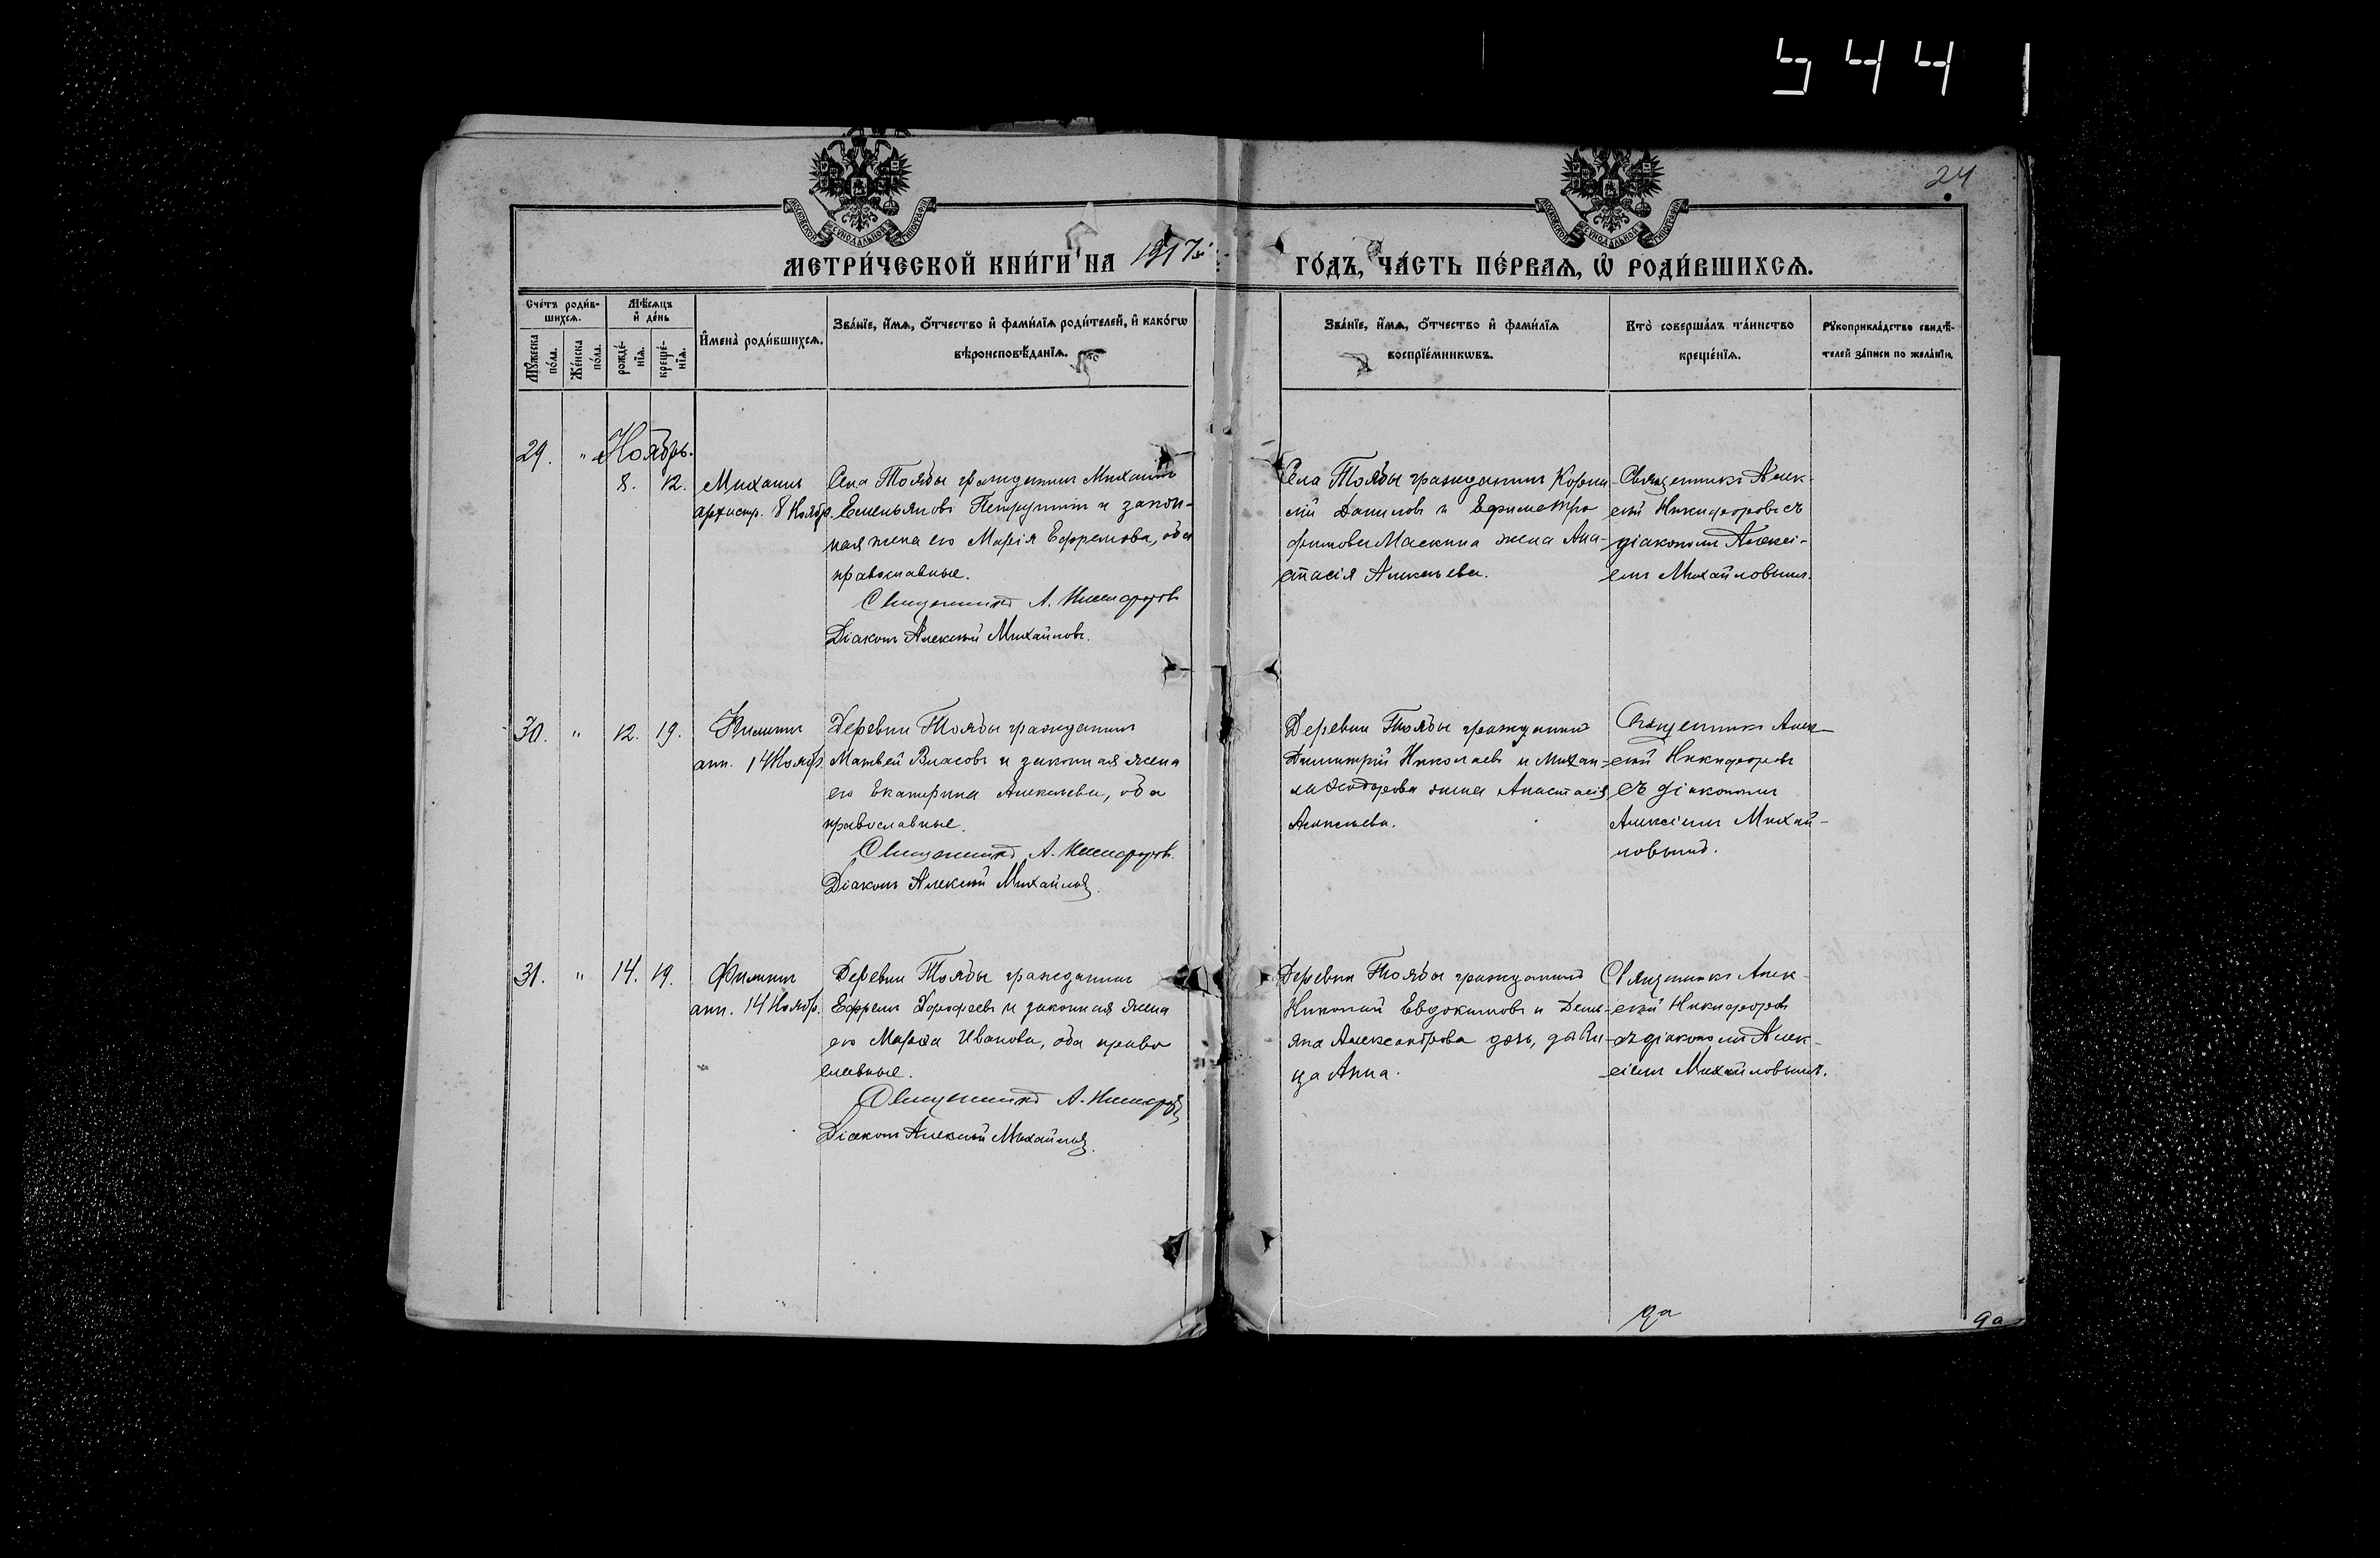 5441
24
МОСКОВСКОЙ СУНОДАЛЬНОЙ ТИПОГРАФІИ
МОСКОВСКОЙ СУНОДАЛЬНОЙ ТИПОГРАФІИ
МЕТРИ́ЧЕСКОЙ КНИ́ГИ НА 1917й
ГО́ДЪ, ЧА́СТЬ ПЕ́РВАЯ, Ѡ҆ РОДИ́ВШИХСЯ.
Сче́тъ роди́в-
шихсѧ.
Мꙋ́жеска по́ла.
Же́нска по́ла.
Мѣ́сѧцъ
и҆ де́нь
рожде́-
нїѧ.
креще́-
нїѧ.
И҆мена̀ роди́вшихсѧ.
Зва́нїе, и҆́мѧ, ѻ҆́тчество и҆ фами́лїѧ роди́телей, и҆ како́гѡ
вѣроисповѣ́данїѧ.
Зва́нїе, и҆́мѧ, ѻ҆́тчество и҆ фами́лїѧ
воспрїе́мникѡвъ.
Кто̀ соверша́лъ та́инство
креще́нїѧ.
Рꙋкоприкла́дство свидѣ́-
телей за́писи по жела́нїю.
29. " Ноябрь.
8. 12. Михаилъ
архистр. 8 Ноябр.
Села Тоябы гражданинъ Михаилъ
Емельяновъ Петрунинъ и закон-
ная жена его Марія Ефремова, оба
православные.
Священникъ А. Никифоровъ
Діаконъ Алексѣй Михайловъ.
Села Тоябы гражданинъ Корни-
лій Даниловъ и Ефима Тро-
фимова Маскина жена Ана-
стасія Алексѣева.
Священникъ Алек-
сѣй Никифоровъ съ
діакономъ Алексі-
емъ Михайловымъ.
30. " 12. 19. Филиппъ
ап. 14 Ноябр.
Деревни Тоябы гражданинъ
Матвей Власовъ и законная жена
его Екатерина Алексѣева, оба
православные.
Священникъ А. Никифоровъ.
Діаконъ Алексѣй Михайловъ.
Деревни Тоябы гражданинъ
Димитрій Николаевъ и Михаи-
ла Ѳеодорова жена Анастасія
Алексѣева.
Священникъ Алек-
сѣй Никифоровъ
съ діакономъ
Алексіемъ Михай-
ловымъ.
31. " 14. 19. Филиппъ
ап. 14 Ноябр.
Деревни Тоябы гражданинъ
Ефремъ Дорофеевъ и законная жена
его Марѳа Иванова, оба право-
славные.
Священникъ А. Никифоровъ
Діаконъ Алексѣй Михайловъ.
Деревни Тоябы гражданинъ
Николай Евдокимовъ и Демь-
яна Александрова дочь, дѣви-
ца Анна.
Священникъ Алек-
сѣй Никифоровъ
съ діакономъ Алек-
сіемъ Михайловымъ.
9а